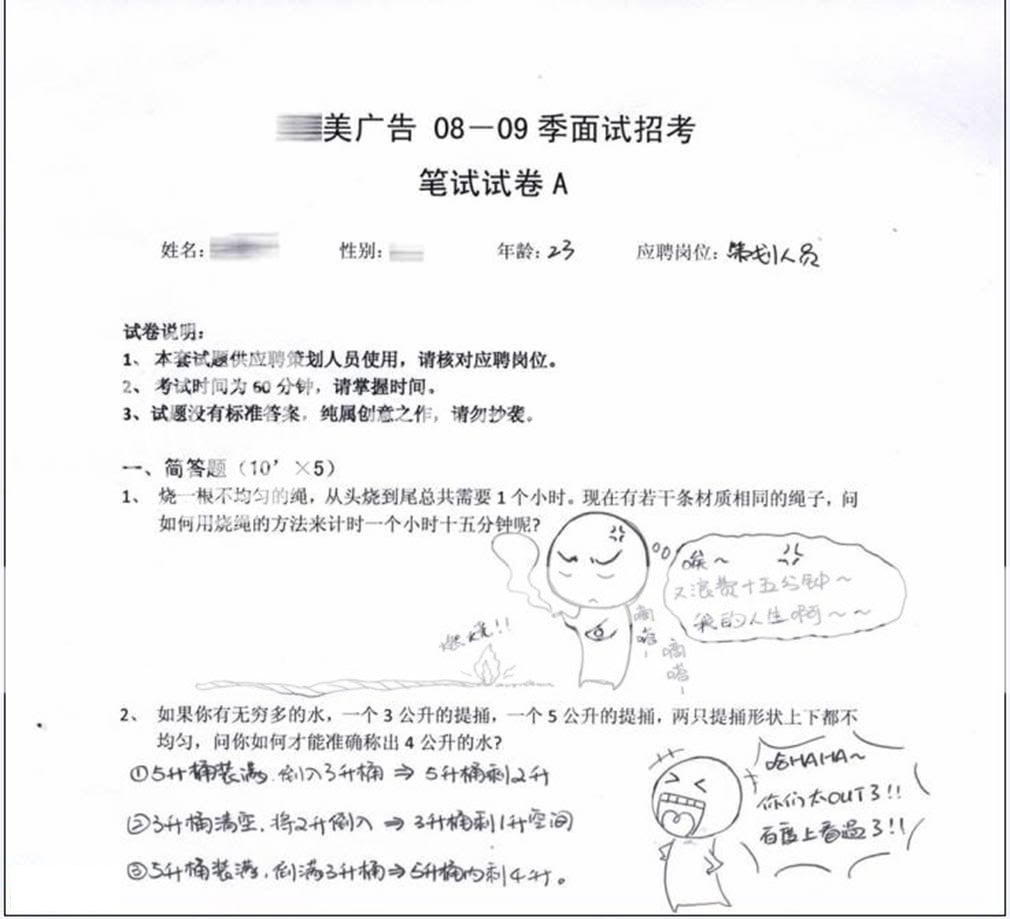 美广告 08－09 季面试招考
笔试试卷 A
姓名： 性别： 年龄：23 应聘岗位：策划人员
试卷说明：
1、 本套试题供应聘策划人员使用，请核对应聘岗位。
2、 考试时间为 60 分钟，请掌握时间。
3、试题没有标准答案，纯属创意之作，请勿抄袭。
一、简答题（10’×5）
1、 烧一根不均匀的绳，从头烧到尾总共需要 1 个小时。现在有若干条材质相同的绳子，问
如何用烧绳的方法来计时一个小时十五分钟呢?
唉～
又浪费十五分钟～
我的人生啊～～
燃烧!!
嘀嗒
嘀嗒
2、 如果你有无穷多的水，一个 3 公升的提捅，一个 5 公升的提捅，两只提捅形状上下都不
均匀，问你如何才能准确称出 4 公升的水?
①5升桶装满.倒入3升桶⇒ 5升桶剩2升
②3升桶清空,将2升倒入 ⇒ 3升桶剩1升空间
③5升桶装满,倒满3升桶⇒5升桶内剩4升。
哈HAHA～
你们太OUT了!!
百度上看过了!!